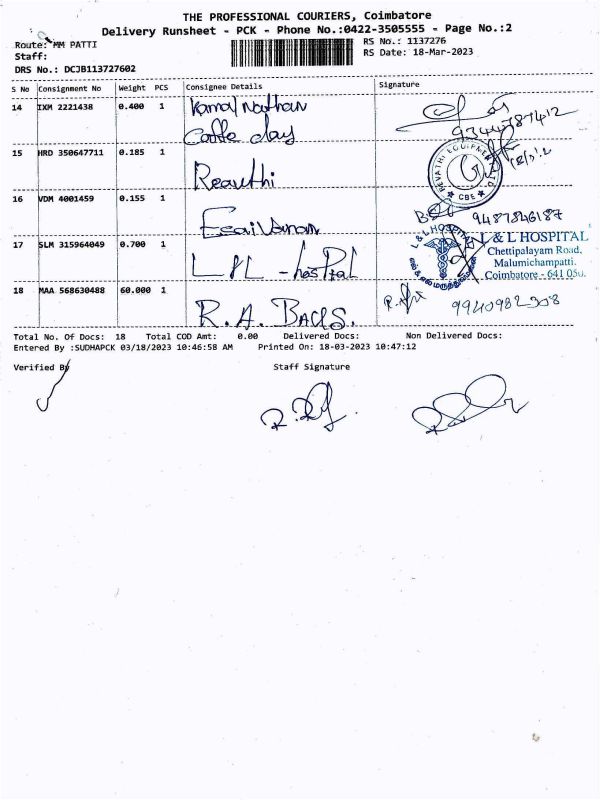 THE PROFESSIONAL COURIERS, Coimbatore
Delivery Runsheet - PCK - Phone No.:0422-3505555 - Page No.:2
Route: MM PATTI
RS No.: 1137276
Staff:
RS Date: 18-Mar-2023
DRS No.: DCJB113727602
S No Consignment No Weight PCS Consignee Details Signature
14 IXM 2221438 0.400 1 Kamal Nathan
Coffe day
9344787412
15 HRD 350647711 0.185 1 Reavthi
REVATHI EQUIPMENT LTD
★ CBE ★
16 VDM 4001459 0.155 1 EsaiVanan
9487846187
17 SLM 315964049 0.700 1 L & L - hosPital
L & L HOSPITAL
L & L HOSPITAL
Chettipalayam Road,
Malumichampatti.
Coimbatore - 641 050.
18 MAA 568630488 60.000 1 R. A. BAGS.
9940982308
Total No. Of Docs: 18 Total COD Amt: 0.00 Delivered Docs: Non Delivered Docs:
Entered By :SUDHAPCK 03/18/2023 10:46:58 AM Printed On: 18-03-2023 10:47:12
Verified By Staff Signature